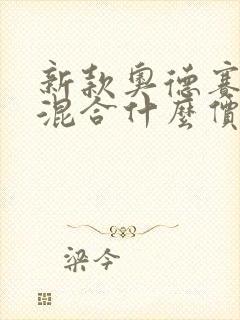 新款奧德賽
混合什麼價
梁今